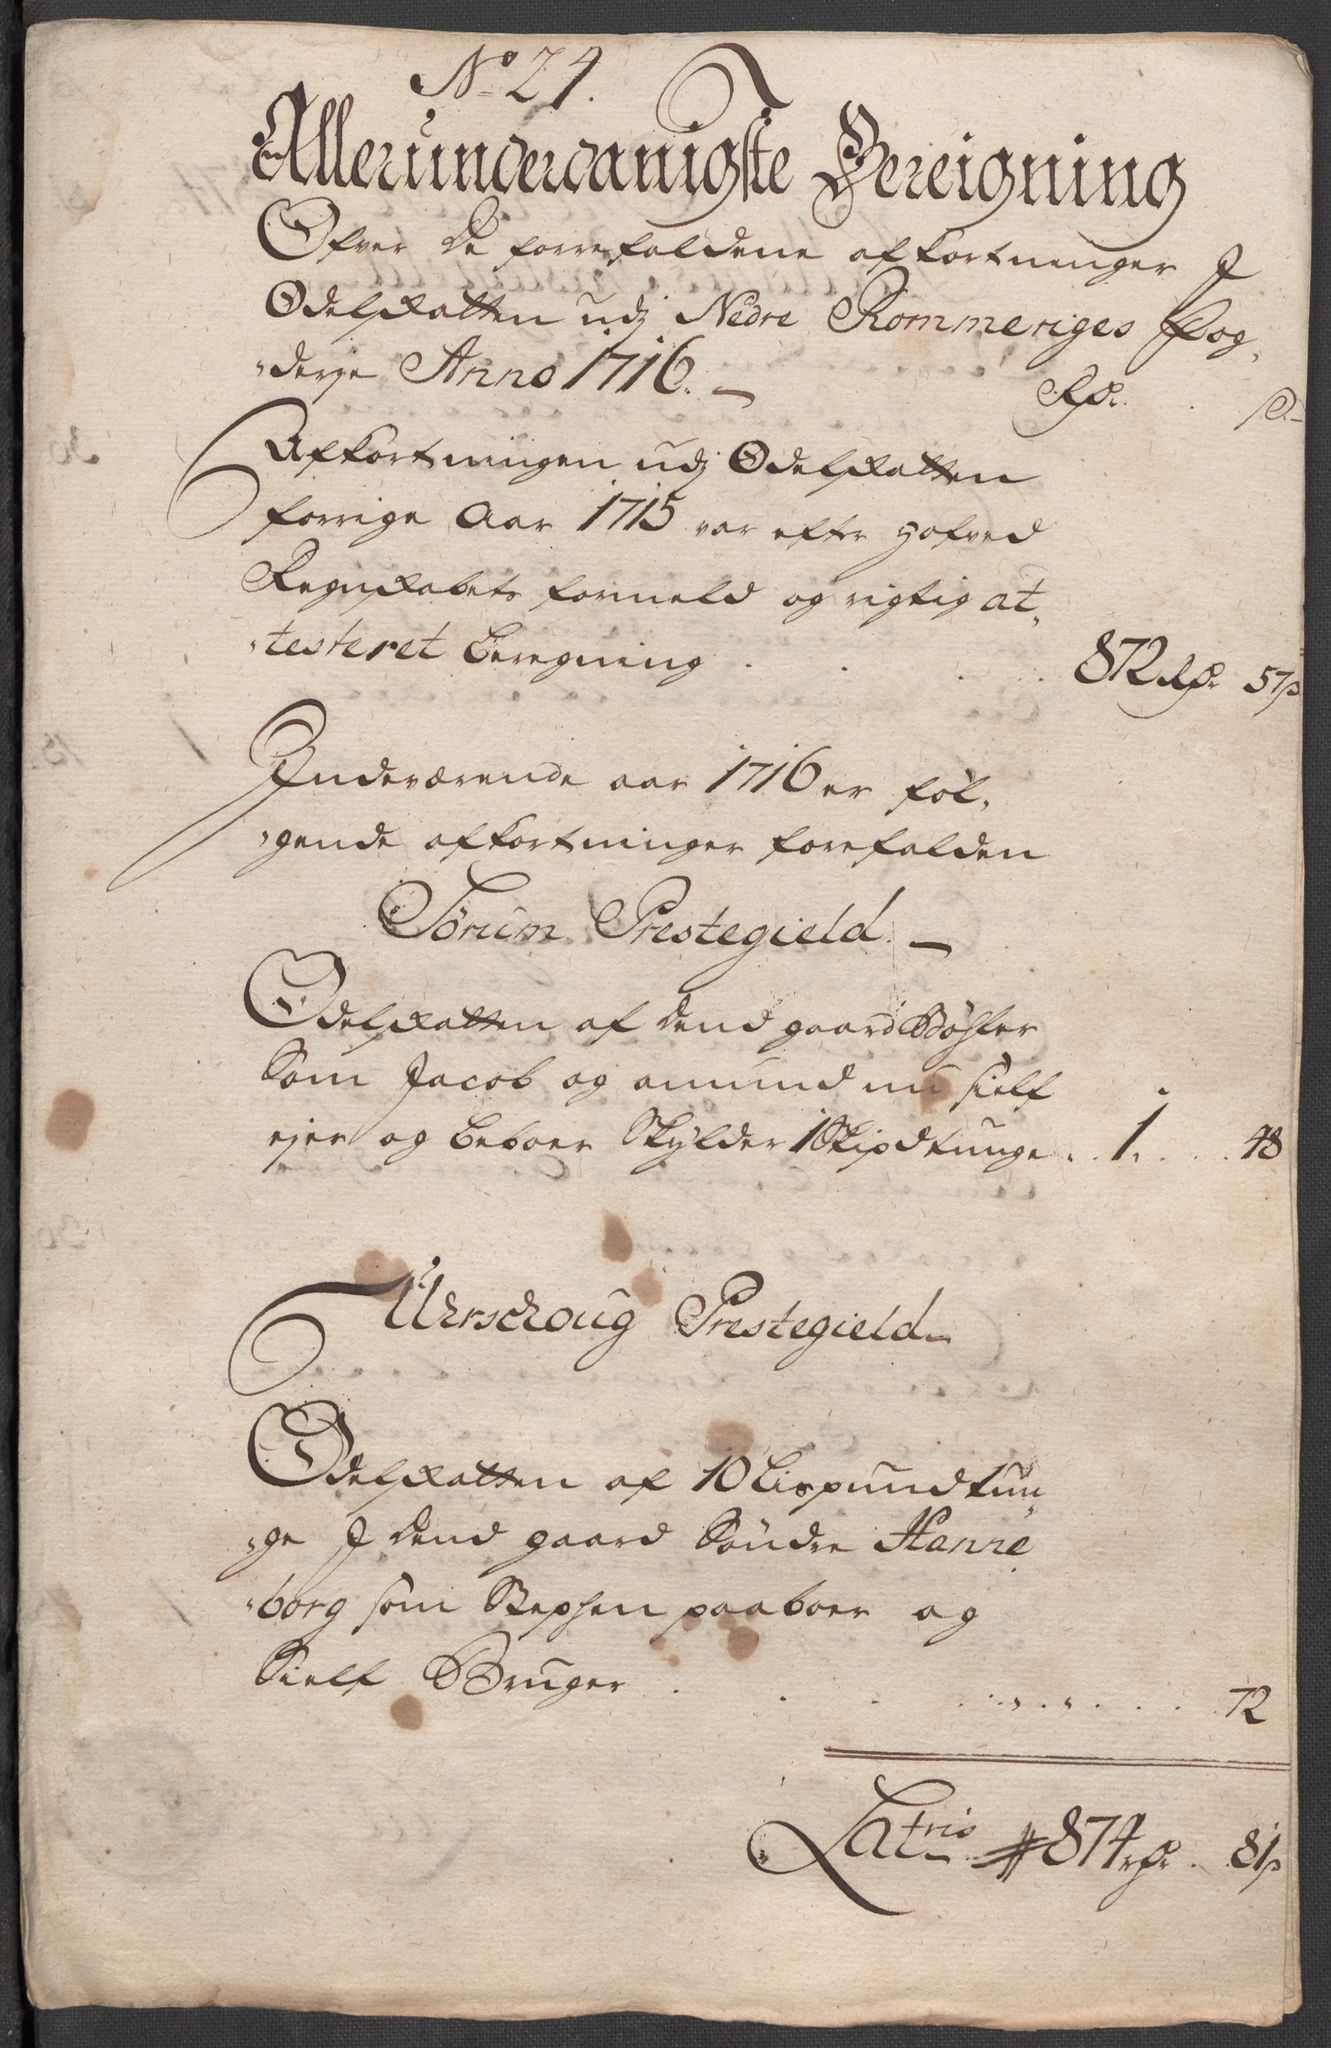 No 24.
Allerunderdanigste Bereigning
Ofver De forrefaldene afkortninger J
Odelskatten udj Nedre Rommeriges Fog,
,derje Anno 1716. Rd. s.
Afkortningen udj Odelskatten
forrige Aar 1715 var efter Hofved
Regnskabets formeld og rigtig at,
,testeret beregning . . . . 872 Rd. 57 s
Jndeværende aar 1716 er føl,
,gende afkortninger forefalden
Sørum Prestegield.
Odelskatten af dend gaard
Som Jacob og Amund nu sielf
ejer og beboer Skylder 1 Skipdtunge . . 1. . . . 48
Urschoug Prestegield
Odelskatten af 10 Lispundtun,
,ge J dend gaard Søndre Hanne
,borg som Stephen paaboer og
Sielf Bruger . . . . . . . . 72
Latris # 874 rd. 81 s